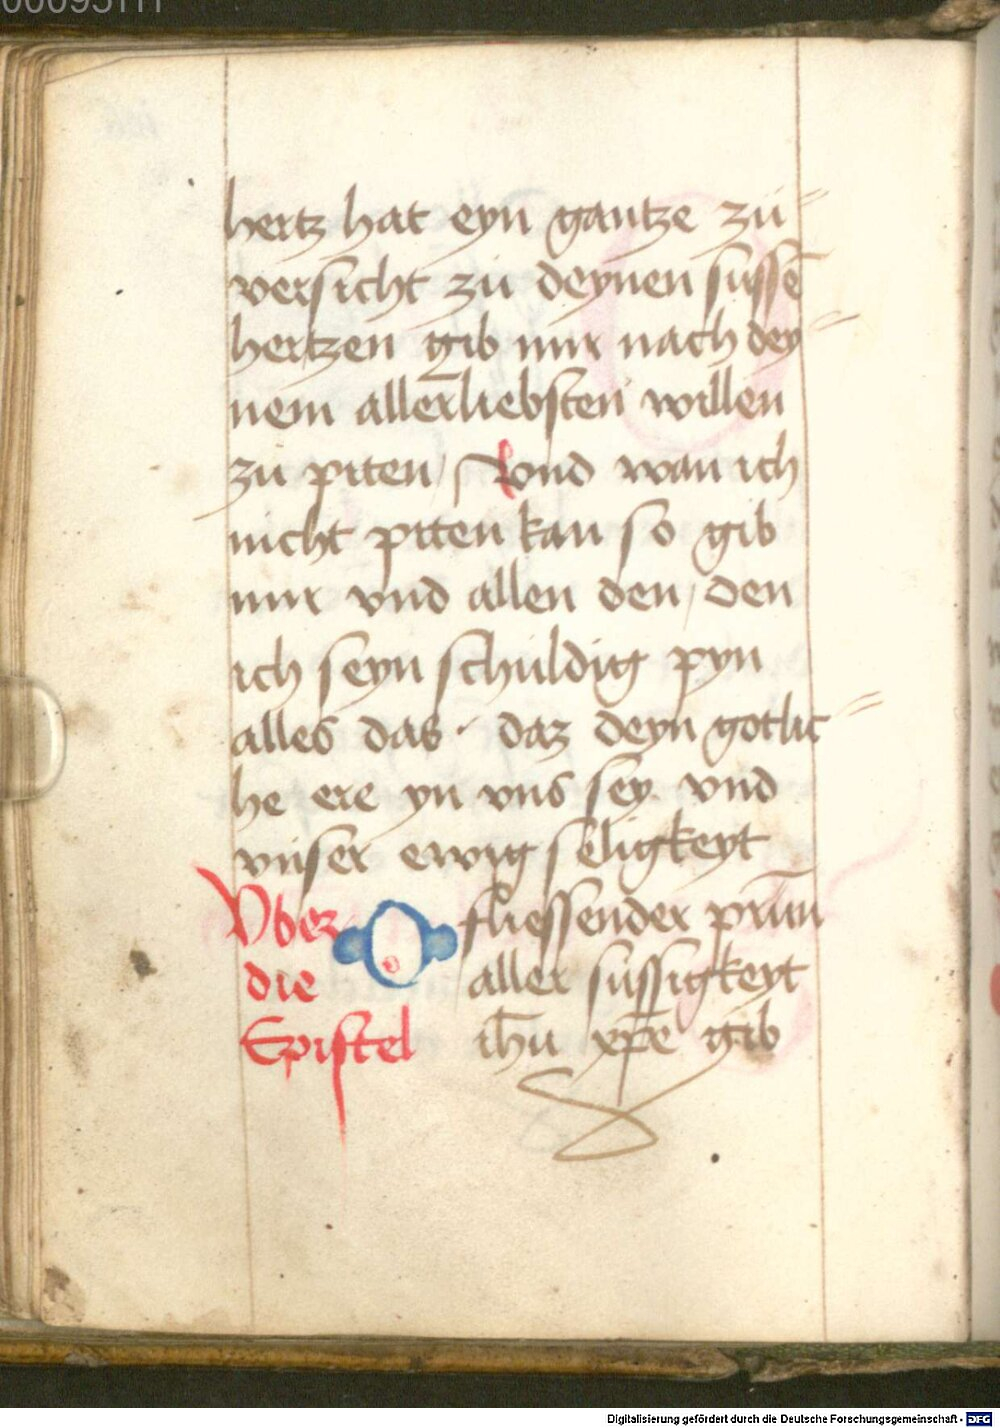 hertz hat eyn gantze zu=
versicht zu deynen sussē
hertzen gib mir nach dey=
nem allerliebsten willen
zu piten / Und wan ich
nicht piten kan so gib
mir vnd allen den / den
ich seyn schuldig pyn
alles das · daz deyn gotlic=
he ere yn vns sey vnd
vnser ewig seligkeyt
Vber O fliessender prūn
die aller sussigkeyt
Epistel ih̄u xp̄e gib
Digitalisierung gefördert durch die Deutsche Forschungsgemeinschaft - DFG